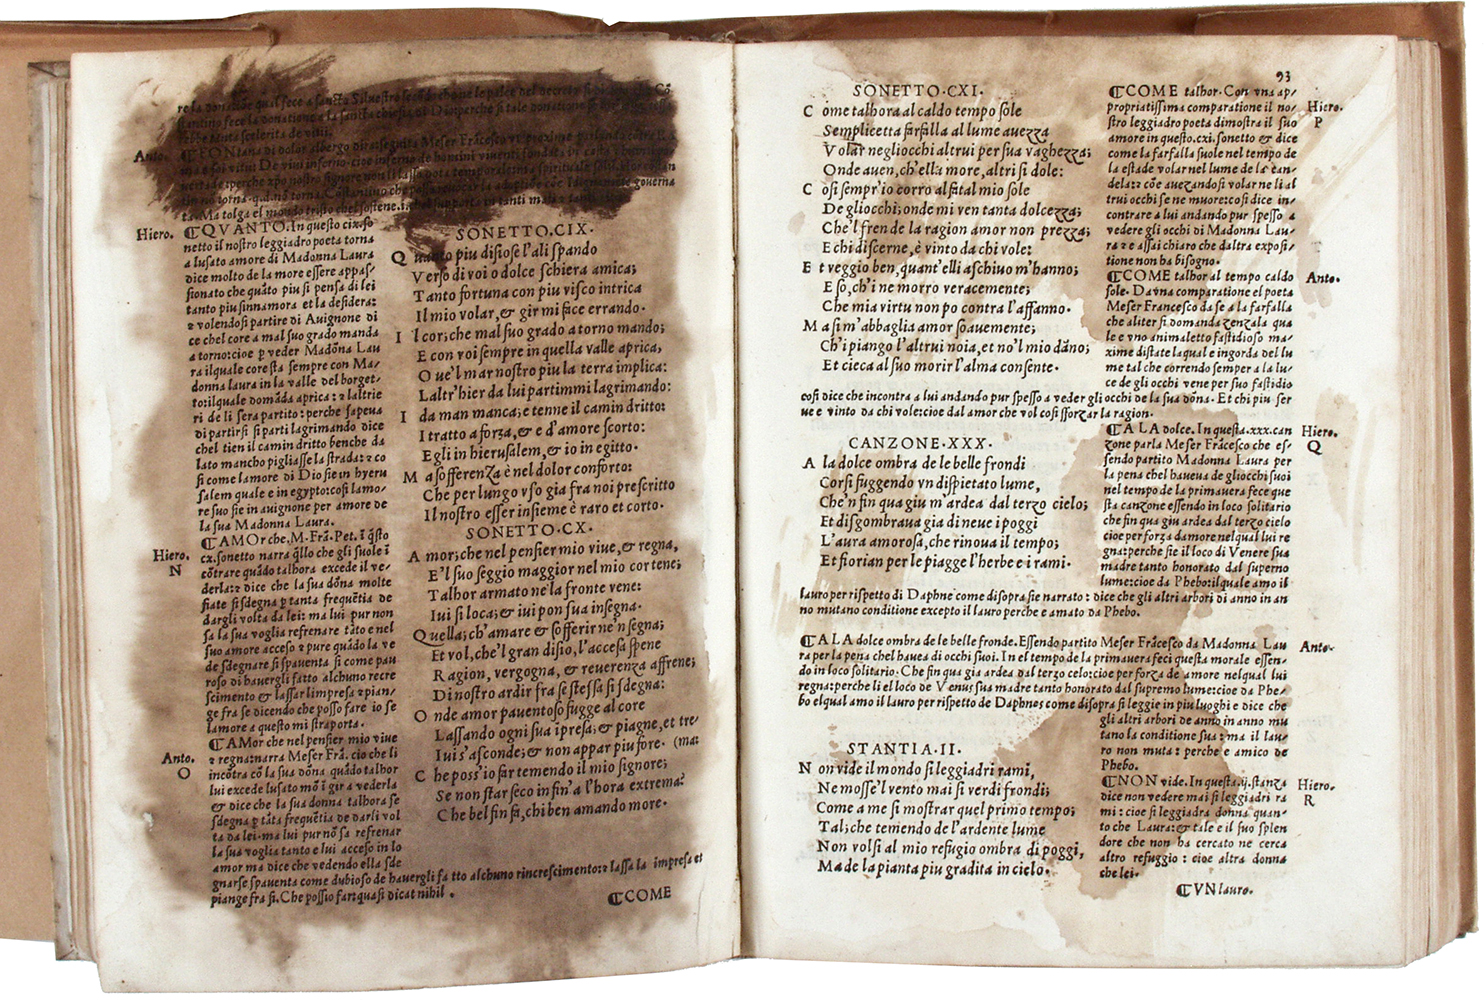 re la donatione qual fece a sancto Silvestro
stantino fece la donatione a la sancta chiesa
Anto.
ta. Ma tolga el mondo tristo chel sostene.i.
Hiero.
ℂQVANTO.In questo cix.so
netto il nostro leggiadro poeta torna
a lusato amore di Madonna Laura
dice molto de la more essere appas/
sionato che quāto piu si pensa di lei
tanto piu sinnamora et la desidera:
⁊ volendosi partire di Auignone di
ce chel core a mal suo grado manda
a torno:cioe ꝑ veder Madōna Lau
ra ilquale core sta sempre con Ma/
donna laura in la valle del borget/
to:ilquale domāda aprica: ⁊ laltrie
ri de li sera partito: perche sapeua
di partirsi si parti lagrimando dice
chel tien il camin dritto benche da
lato mancho pigliasse la strada:⁊ co
si come lamore di Dio sie in hyeru
salem quale e in egypto:cosi lamo/
re suo sie in auignone per amore de
la sua Madonna Laura.
ℂAMOr che. M. Frā. Pet. ī q̄sto
Hiero.
N
cx.sonetto narra q̄llo che gli suole ī
cōtrare quādo talhora excede il ve/
derla:⁊ dice che la sua dōna molte
fiate si sdegna ꝑ tanta frequētia de
dargli volta da lei: ma lui pur non
sa la sua voglia refrenare tāto e nel
suo amore acceso ⁊ pure quādo la ve
de sdegnare si spauenta si come pau
roso di hauergli fatto alchuno recre
scimento & lassar limpresa ⁊ pian/
ge fra se dicendo che posso fare io se
lamore a questo mi straporta.
Anto.
O
ℂAMor che nel pensier mio viue
⁊ regna:narra Meser Frā. cio che li
incōtra cō la sua dōna quādo talhor
lui excede lusato mō ī gir a vederla
& dice che la sua donna talhora se
sdegna ꝑ tāta frequētia de darli vol
ta da lei.ma lui pur nō sa refrenar
la sua voglia tanto e lui acceso in lo
amor ma dice che vedendo ella sde
gnarse spauenta come dubioso de hauergli fatto alchuno rincrescimento:⁊ lassa la impresa et
piange fra si. Che possio far:quasi dicat nihil.
SONETTO.CIX.
Quanto piu disiose l'ali spando
Verso di voi o dolce schiera amica;
Tanto fortuna con piu visco intrica
Il mio volar,& gir mi face errando.
I l cor;che mal suo grado a torno mando;
E con voi sempre in quella valle aprica,
O ue'l mar nostro piu la terra implica:
L'altr'hier da lui partimmi lagrimando:
I da man manca;e tenne il camin dritto:
I tratto a forza,& e d'amore scorto:
Egli in hierusalem,& io in egitto.
M a sofferenza è nel dolor conforto:
Che per lungo vso gia fra noi prescritto
Il nostro esser insieme è raro et corto.
SONETTO.CX.
A mor;che nel pensier mio viue,& regna,
E'l suo seggio maggior nel mio cor tene;
Talhor armato ne la fronte vene:
Iui si loca;& iui pon sua insegna.
Quella;ch'amare & sofferir ne'n segna;
Et vol,che'l gran disio,l'accesa spene
Ragion, vergogna, & reuerenza affrene;
Di nostro ardir fra se stessa si sdegna:
O nde amor pauentoso fugge al core
Lassando ogni sua īpresa;& piagne,et tre/
Iui s'asconde;& non appar piu fore. (ma:
C he poss'io far temendo il mio signore;
Se non star seco infin'a l'hora extrema?
Che bel fin fa,chi ben amando more.
ℂCOME
93
SONETTO.CXI.
C ome talhora al caldo tempo sole
Semplicetta farfalla al lume auezza
Volar negliocchi altrui per sua vaghezza;
Onde auen,ch'ella more,altri si dole:
C osi sempr'io corro al fatal mio sole
De gliocchi;onde mi ven tanta dolcezza;
Che'l fren de la ragion amor non prezza;
E chi discerne,è vinto da chi vole:
E t veggio ben,quant'elli aschiuo m'hanno;
E so,ch'i ne morro veracemente;
Che mia virtu non po contra l'affanno.
M a si m'abbaglia amor soauemente;
Ch'i piango l'altrui noia,et no'l mio dāno;
Et cieca al suo morir l'alma consente.
ℂCOME talhor. Con vna ap/
propriatissima comparatione il no/
Hiero.
P
stro leggiadro poeta dimostra il suo
amore in questo.cxi.sonetto & dice
come la farfalla suole nel tempo de
la estade volar nel lume de la can/
dela:⁊ cōe auezandosi volar ne li al
trui occhi se ne muore:cosi dice in/
contrare a lui andando pur spesso a
vedere gli occhi di Madonna Lau/
ra ⁊ e assai chiaro che daltra exposi/
tione non ha bisogno.
ℂCOME talhor al tempo caldo
Anto.
sole. Da vna comparatione el poeta
Meser Francesco da se a la farfalla
che aliter si domanda zenzala qua
le e vno animaletto fastidioso ma/
xime distate laqual e ingorda del lu
me tal che correndo semper a la lu/
ce de gli occhi vene per suo fastidio
cosi dice che incontra a lui andando pur spesso a veder gli occhi de la sua dōna. Et chi piu ser
ue e vinto da chi vole:cioe dal amor che vol cosi sforzar la ragion.
CANZONE.XXX.
A la dolce ombra de le belle frondi
Corsi fuggendo vn dispietato lume,
Che'n fin qua giu m'ardea dal terzo cielo;
Et disgombraua gia di neue i poggi
L'aura amorosa,che rinoua il tempo;
Et fiorian per le piagge l'herbe e i rami.
ℂALA dolce. In questa.xxx.can
Hiero.
Q
zone parla Meser Frācesco che es/
sendo partito Madonna Laura per
la pena chel haueua de gliocchi suoi
nel tempo de la primauera fece que
sta canzone essendo in loco solitario
che fin qua giu ardea dal terzo cielo
cioe per forza damore nelqual lui re
gna:perche sie il loco di Venere sua
madre tanto honorato dal superno
lume:cioe da Phebo:ilquale amo il
lauro per rispetto di Daphne come disopra sie narrato: dice che gli altri arbori di anno in an
no mutano conditione excepto il lauro perche e amato da Phebo.
ℂALA dolce ombra de le belle fronde.Essendo partito Meser Frācesco da Madonna Lau
Anto.
ra per la pena chel hauea di occhi suoi. In el tempo de la primauera feci questa morale essen/
do in loco solitario. Che fin qua gia ardea dal terzo celo:cioe per forza de amore nelqual lui
regna:perche li el loco de Venus sua madre tanto honorato dal supremo lume:cioe da Phe/
bo elqual amo il lauro per rispetto de Daphnes come disopra si leggie in piu luoghi e dice che
gli altri arbori de anno in anno mu
tano la conditione sua: ma il lau/
ro non muta: perche e amico de
Phebo.
STANTIA.II.
N on vide il mondo si leggiadri rami,
Ne mosse'l vento mai si verdi frondi;
Come a me si mostrar quel primo tempo;
Tal;che temendo de l'ardente lume
Non volsi al mio refugio ombra di poggi,
Ma de la pianta piu gradita in cielo.
ℂNON vide. In questa.ij.stanza
Hiero.
R
dice non vedere mai si leggiadri ra
mi: cioe si leggiadra donna quan/
to che Laura:& tale e il suo splen
dore che non ha cercato ne cerca
altro refuggio: cioe altra donna
che lei.
ℂVN lauro.